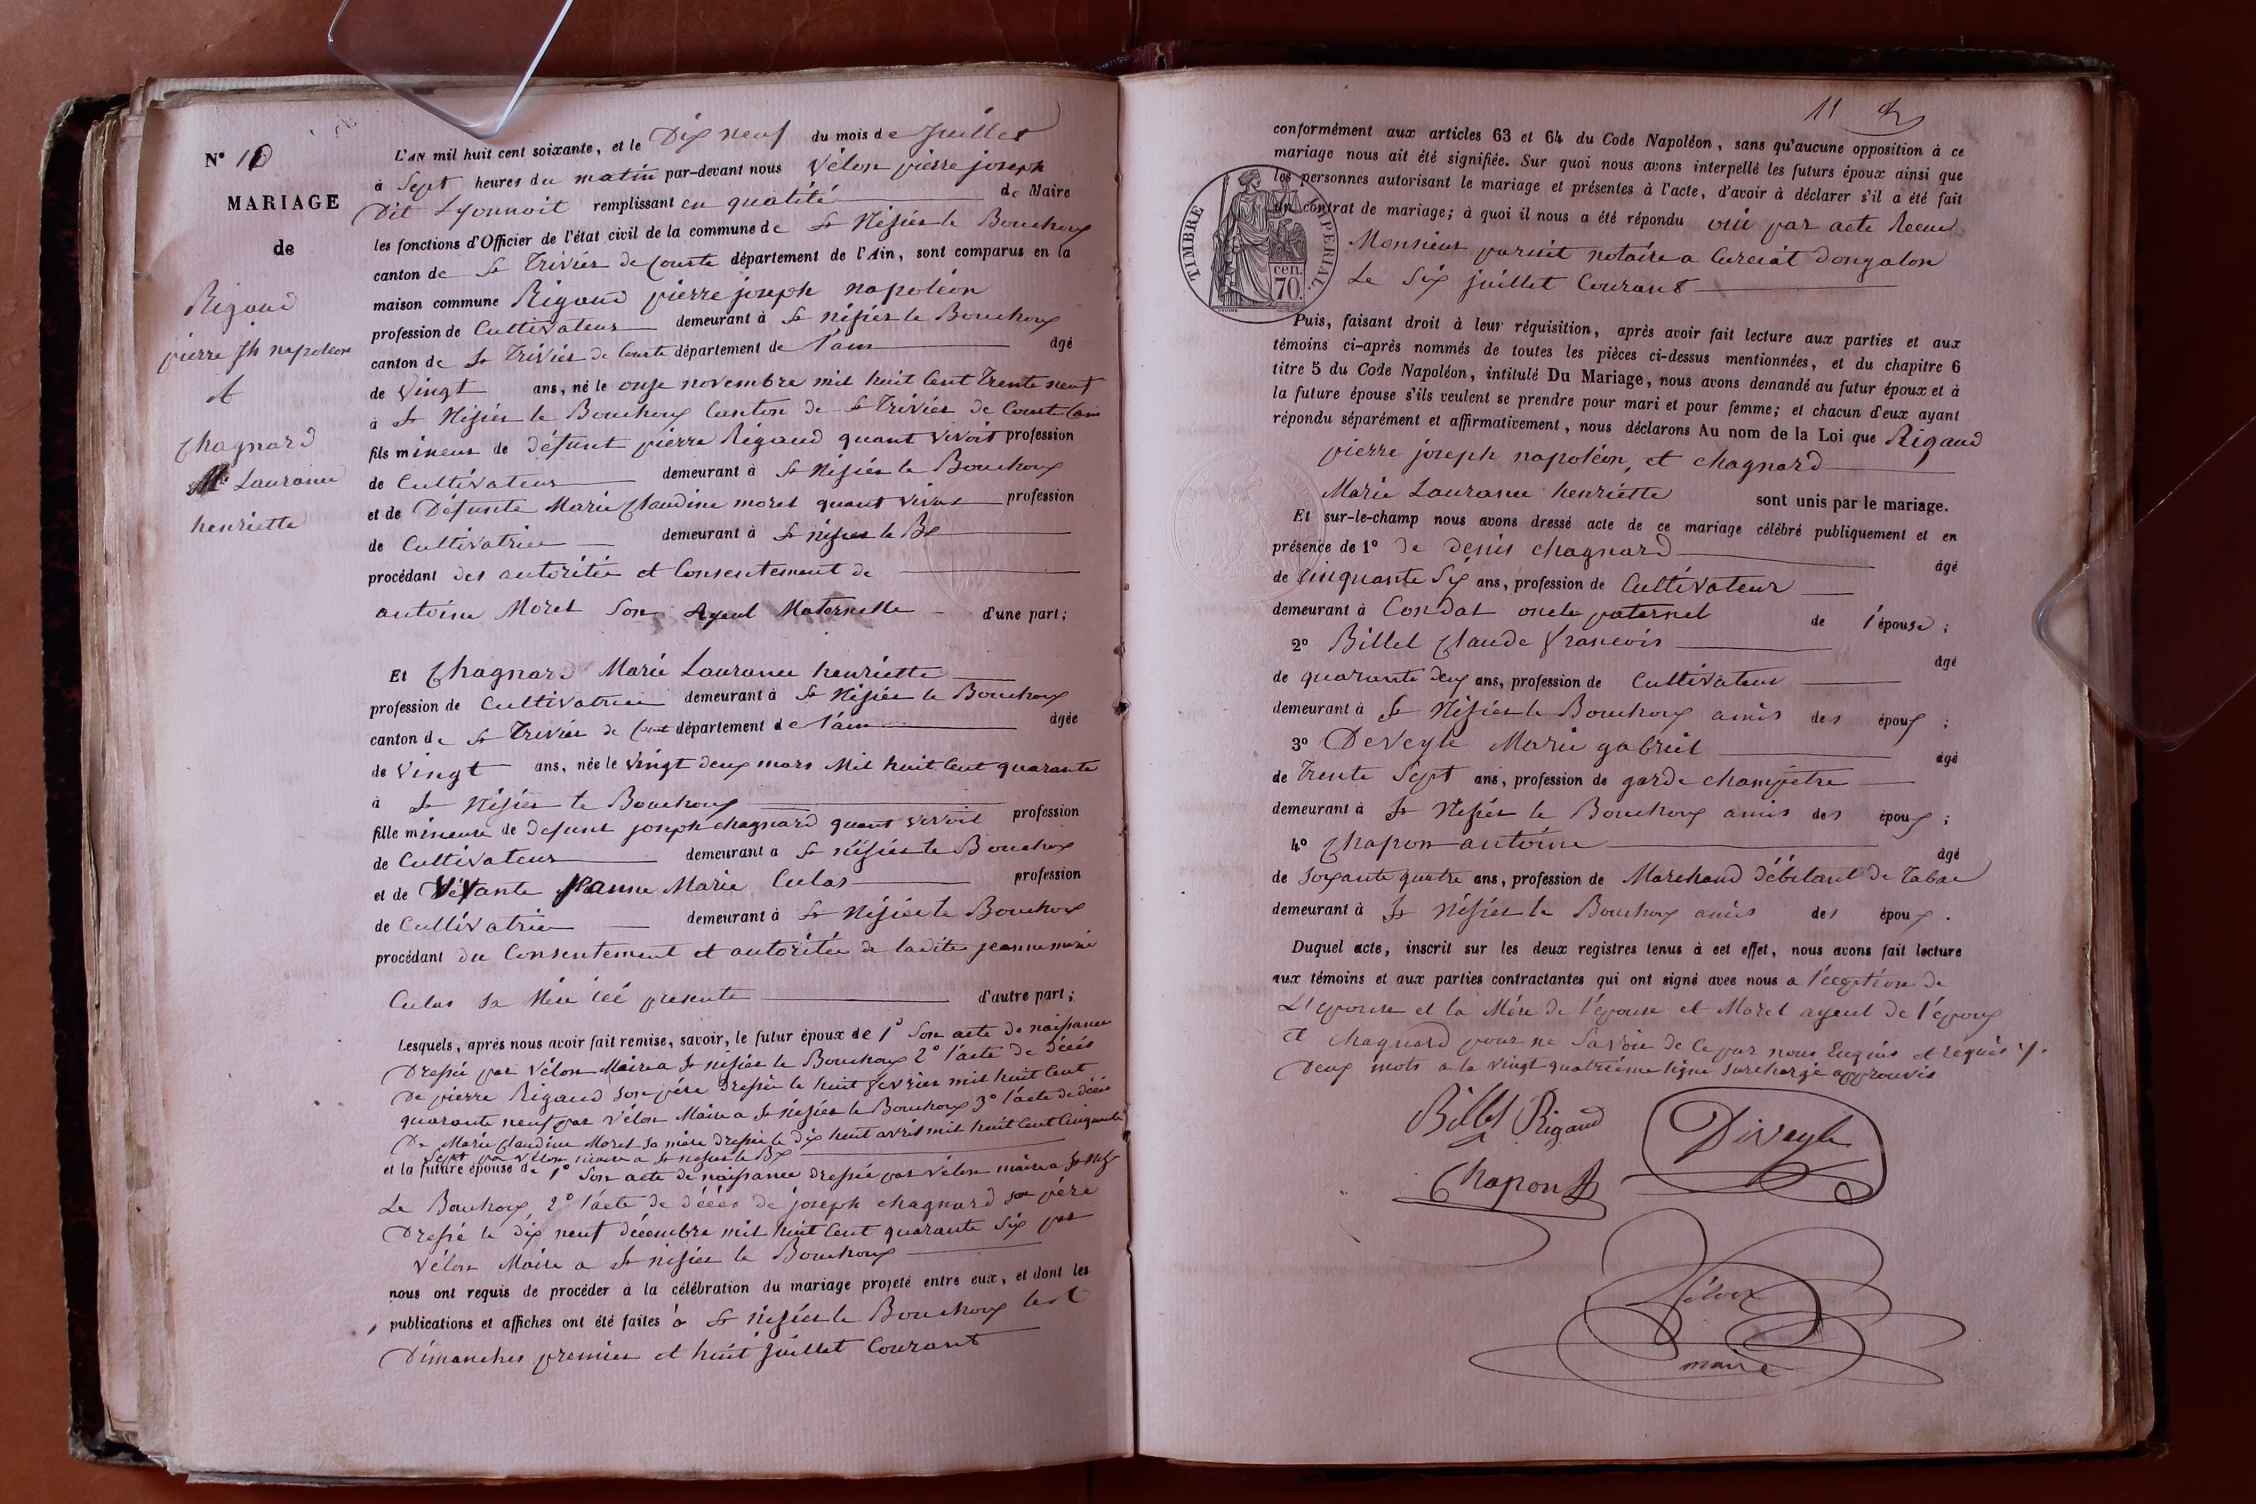 N° 10
MARIAGE
de
Rigaud
pierre jh napoléon
et
Chagnard
Mie Laurance
henriette
L'AN mil huit cent soixante, et le Dix neuf du mois de Juillet
à Sept heures du matin par-devant nous Vélon pierre joseph
Dit Lyonnoit remplissant en qualité de Maire
les fonctions d'Officier de l'état civil de la commune de St Nisier le Bouchoux
canton de St Trivier de Courte département de l'Ain, sont comparus en la
maison commune Rigaud pierre joseph napoléon
profession de Cultivateur demeurant à St nisier le Bouchoux
canton de St Trivier de Courte département de l'ain âgé
de Vingt ans, né le onze novembre mil huit Cent Trente neuf
à St Nisier le Bouchoux Canton de St Trivier de Court (ain
fils mineur de défunt pierre Rigaud quant vivoit profession
de Cultivateur demeurant à St Nisier le Bouchoux
et de Défunte Marie Claudine moret quant vivat profession
de Cultivatrice demeurant à St nisier le Bx
procédant des autoritée et Consentement de
antoine Moret Son Ayeul Maternelle d'une part;
Et Chagnard Marie Laurance henriette
profession de Cultivatrice demeurant à St Nisier le Bouchoux
canton de St Trivier de Court département de l'ain âgée
de Vingt ans, née le Vingt deux mars Mil huit Cent quarante
à St Nisier le Bouchoux
fille mineure de defunt joseph chagnard quant vivoit profession
de Cultivateur demeurant à St Nisier le Bouchoux
et de Vivante Jeanne Marie Culas profession
de Cultivatrice demeurant à St Nisier le Bouchoux
procédant du Consentement et autoritée de ladite jeanne marie
Culas Sa Mére icé presente d'autre part;
Lesquels, après nous avoir fait remise, savoir, le futur époux de 1° Son acte de naissance
Dressée par Vélon Maire a St nisier le Bouchoux 2° l'acte de décés
De pierre Rigaud Son pére Dressée le huit fevrier mil huit Cent
quarante neuf par Vélon Maire a St nisier le Bouchoux 3° l'acte de décés
De Marie Claudine Moret Sa mére dressée le dix huit avril mil huit Cent Cinquante
Sept par Vélon maire a St nisier le Bx
et la future épouse de 1° Son acte de naissance dressée par Vélon maire a St nisier
Le Bouchoux 2° l'acte de décés de joseph chagnard son pére
Dressé le dix neuf décembre mil huit Cent quarante Six par
Vélon Maire a St nisier le Bouchoux
nous ont requis de procéder à la célébration du mariage projeté entre eux, et dont les
publications et affiches ont été faites à St Nisier le Bouchoux les
Dimanches premier et huit juillet Courant
11
conformément aux articles 63 et 64 du Code Napoléon, sans qu'aucune opposition à ce
mariage nous ait été signifiée. Sur quoi nous avons interpellé les futurs époux ainsi que
les personnes autorisant le mariage et présentes à l'acte, d'avoir à déclarer s'il a été fait
un contrat de mariage; à quoi il nous a été répondu oui par acte Recue
Monsieur parnit notaire a Curciat dongalon
Le Six juillet Courant
TIMBRE IMPERIAL.
cen.
70.
Puis, faisant droit à leur réquisition, après avoir fait lecture aux parties et aux
témoins ci-après nommés de toutes les pièces ci-dessus mentionnées, et du chapitre 6
titre 5 du Code Napoléon, intitulé Du Mariage, nous avons demandé au futur époux et à
la future épouse s'ils veulent se prendre pour mari et pour femme; et chacun d'eux ayant
répondu séparément et affirmativement, nous déclarons Au nom de la Loi que Rigaud
pierre joseph napoléon, et chagnard
Marie Laurance henriette sont unis par le mariage.
Et sur-le-champ nous avons dressé acte de ce mariage célébré publiquement et en
présence de 1° De denis chagnard âgé
de Cinquante Six ans, profession de Cultivateur
demeurant à Condat oncle paternel de l'épouse;
2° Billet Claude francois âgé
de quarante deux ans, profession de Cultivateur
demeurant à St Nisier le Bouchoux amis des époux;
3° Deveyle Marie gabriel âgé
de Trente Sept ans, profession de garde champetre
demeurant à St Nisier le Bouchoux amis des époux;
4° Chapon antoine âgé
de Soixante quatre ans, profession de Marchand débitant de Tabac
demeurant à St Nisier le Bouchoux amis des époux.
Duquel acte, inscrit sur les deux registres tenus à cet effet, nous avons fait lecture
aux témoins et aux parties contractantes qui ont signé avec nous a l'éception de
L'epouse et la Mére de l'épouse et Moret ayeul de l'époux
et chagnard pour ne Savoir de Ce par nous Enquis et requis
Deux mots a la vingt quatriéme ligne Surchargé approuvés
Billet Rigaud
Deveyle
Chapon
Vélon
maire